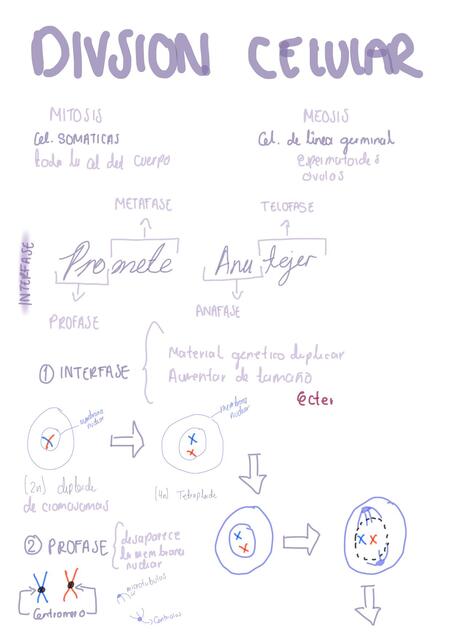 DIVSION CELULAR
MITOSIS
Cel. SOMATICAS
toda la cel del cuerpo
MEOSIS
Cel. de linea germinal
espermatoides
óvulos
METAFASE
TELOFASE
INTERFASE
Promete
Ana tejer
PROFASE
ANAFASE
① INTERFASE
Material genetico duplicar
Aumentar de tamaño
@cter
membrana nuclear
membrana nuclear
(2n) diploide
de cromosomas
(4n) Tetraploide
② PROFASE
desaparece
la membrana
nuclear
microtubulos
Centromero
Centriolos